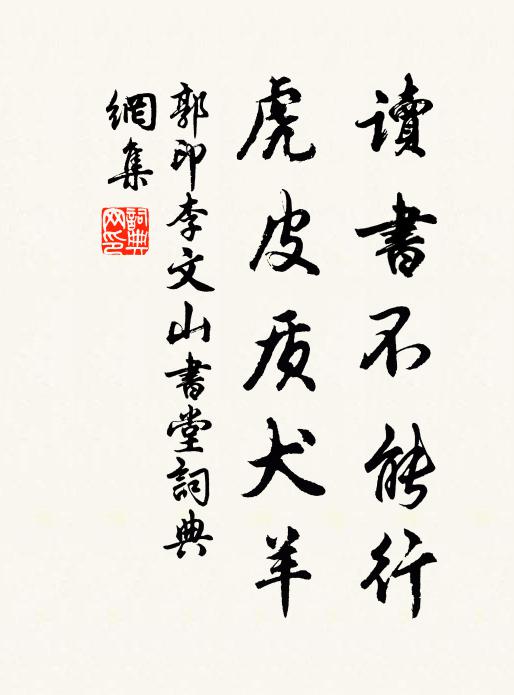 讀書不能行
虎皮质犬羊
郭印李文山書堂詞典
網集
詞典
网印